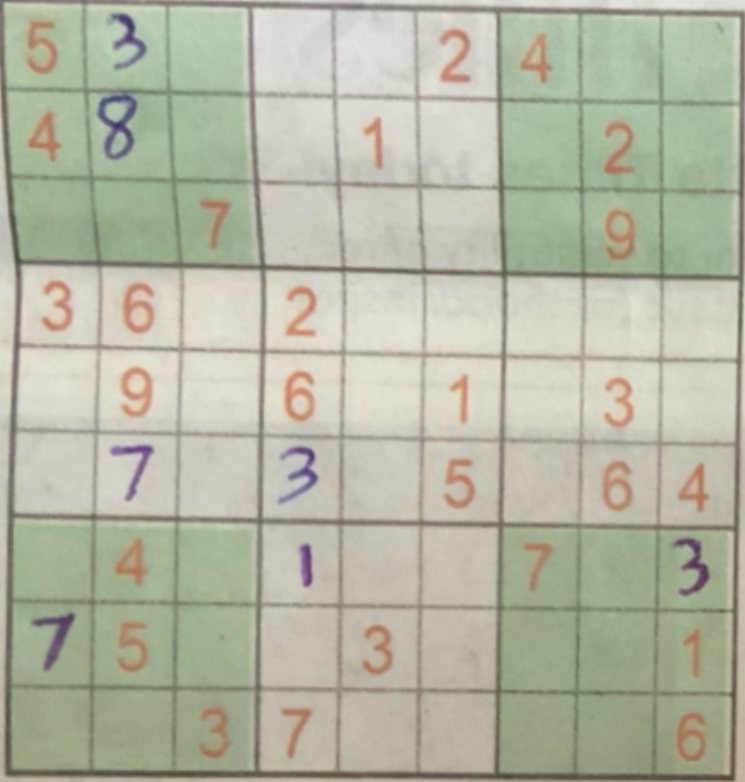 5 3 2 4
4 8 1 2
7 9
3 6 2
9 6 1 3
7 3 5 6 4
4 1 7 3
7 5 3 1
3 7 6